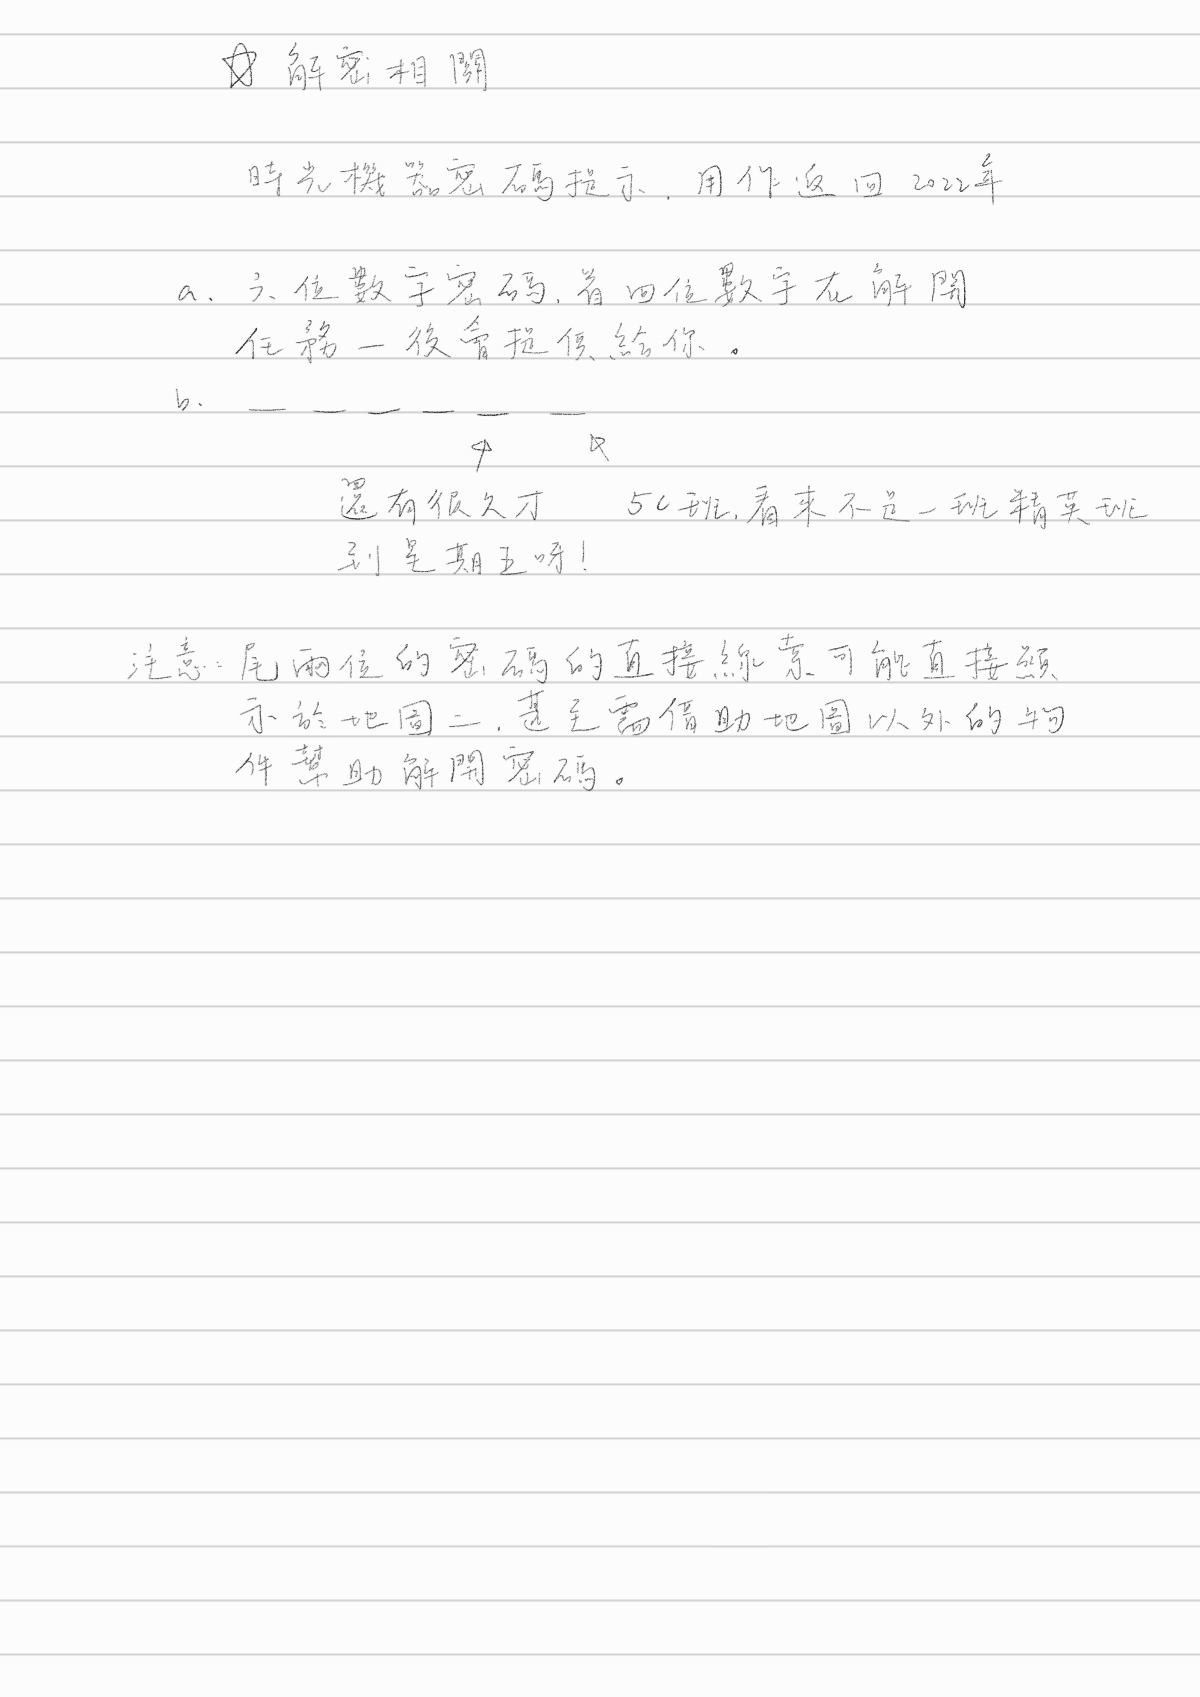 ☆ 解密相關
時光機器密碼提示，用作返回 2022年
a. 六位數字密碼，首四位數字在解開
任務一後會提供給你。
b. _ _ _ _ _ _
還有很久才 5C班，看來不是一班精英班
到星期五呀！
注意：尾兩位的密碼的直接線索可能直接顯
示於地圖二，甚至需借助地圖以外的物
件幫助解開密碼。